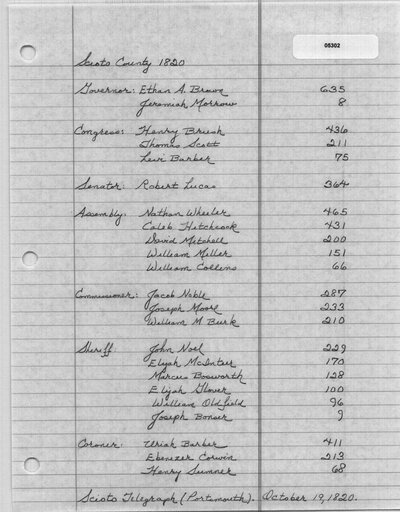 05302
Scioto County 1820
Governor: Ethan A. Brown 635
Jeremiah Morrow 8
Congress: Henry Brush 436
Thomas Scott 211
Levi Barber 75
Senator: Robert Lucas 364
Assembly: Nathan Wheeler 465
Caleb Hitchcock 431
David Mitchell 200
William Miller 151
William Collins 66
Commissioner: Jacob Noble 287
Joseph Moore 233
William M Burk 210
Sheriff: John Noel 229
Elijah McIntier 170
Marcus Bosworth 128
Elijah Glover 100
William Oldfield 96
Joseph Bonser 9
Coroner: Uriah Barber 411
Ebenezer Corwin 213
Henry Sumner 68
Scioto Telegraph (Portsmouth). October 19, 1820.